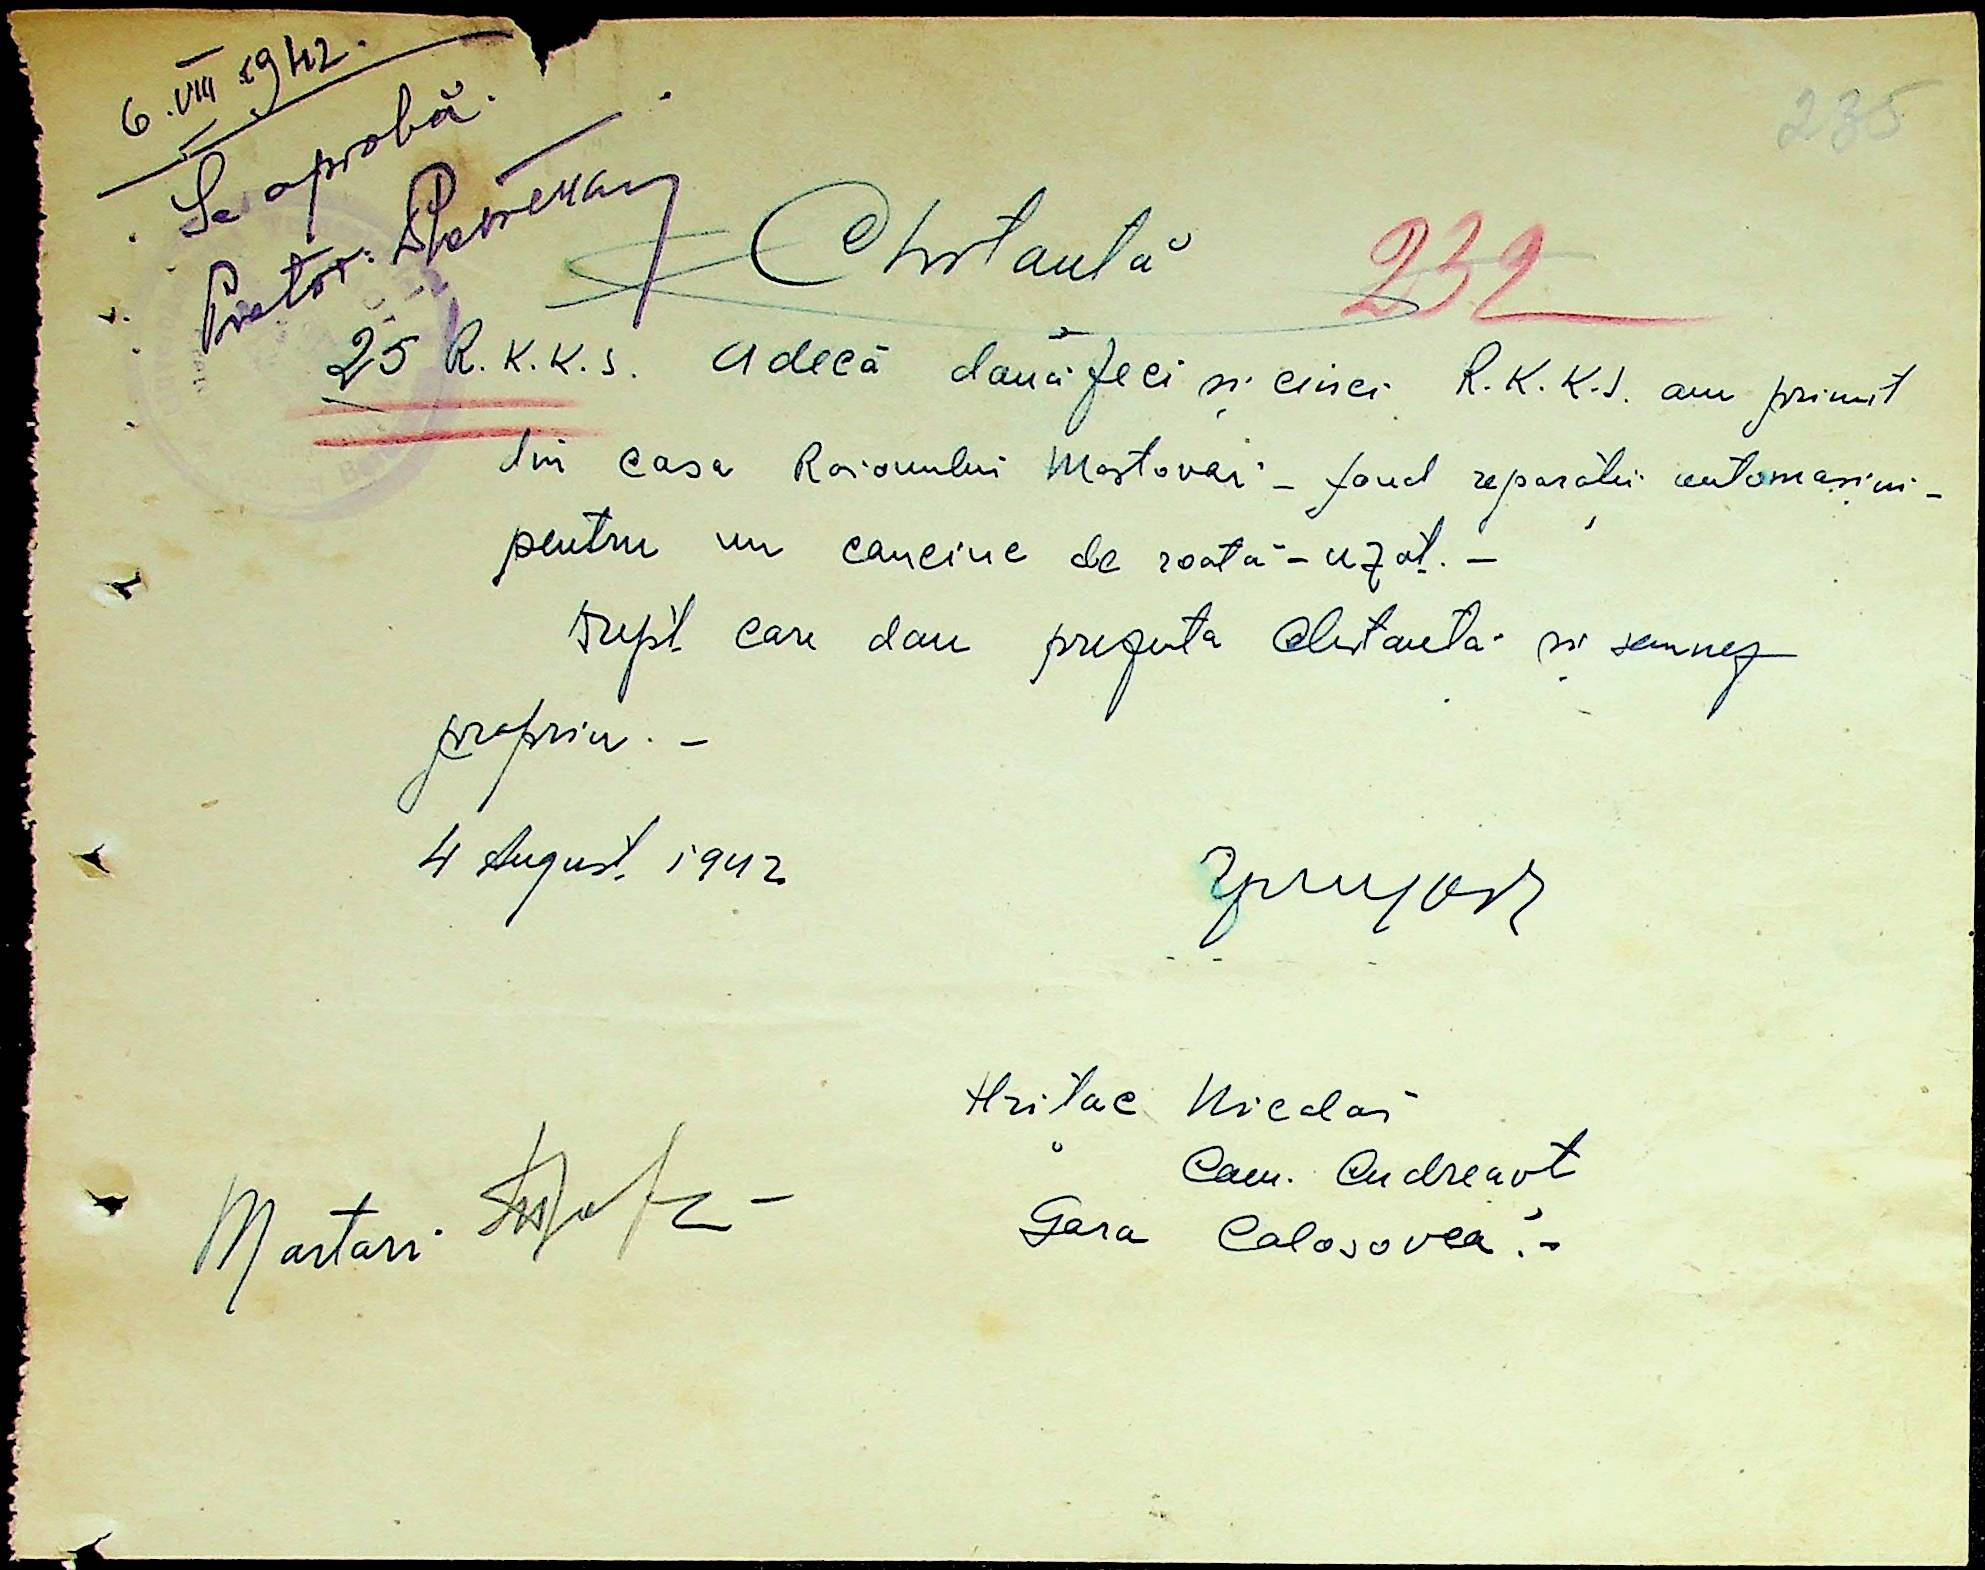 6.VIII 1942.
Se aprobă.
Pretor:
235
Chitantă
232
25 R.K.K.S. adecă douăzeci și cinci R.K.K.S. am primit
din casa Raionului Mostovoi – fond reparații automașini –
pentru un cauciuc de roată – uzat. –
Drept care dau prezenta chitanta și semnez
propriu. –
4 August 1942
Hritac Nicolai
Com.
Gara Colosovca. –
Martori